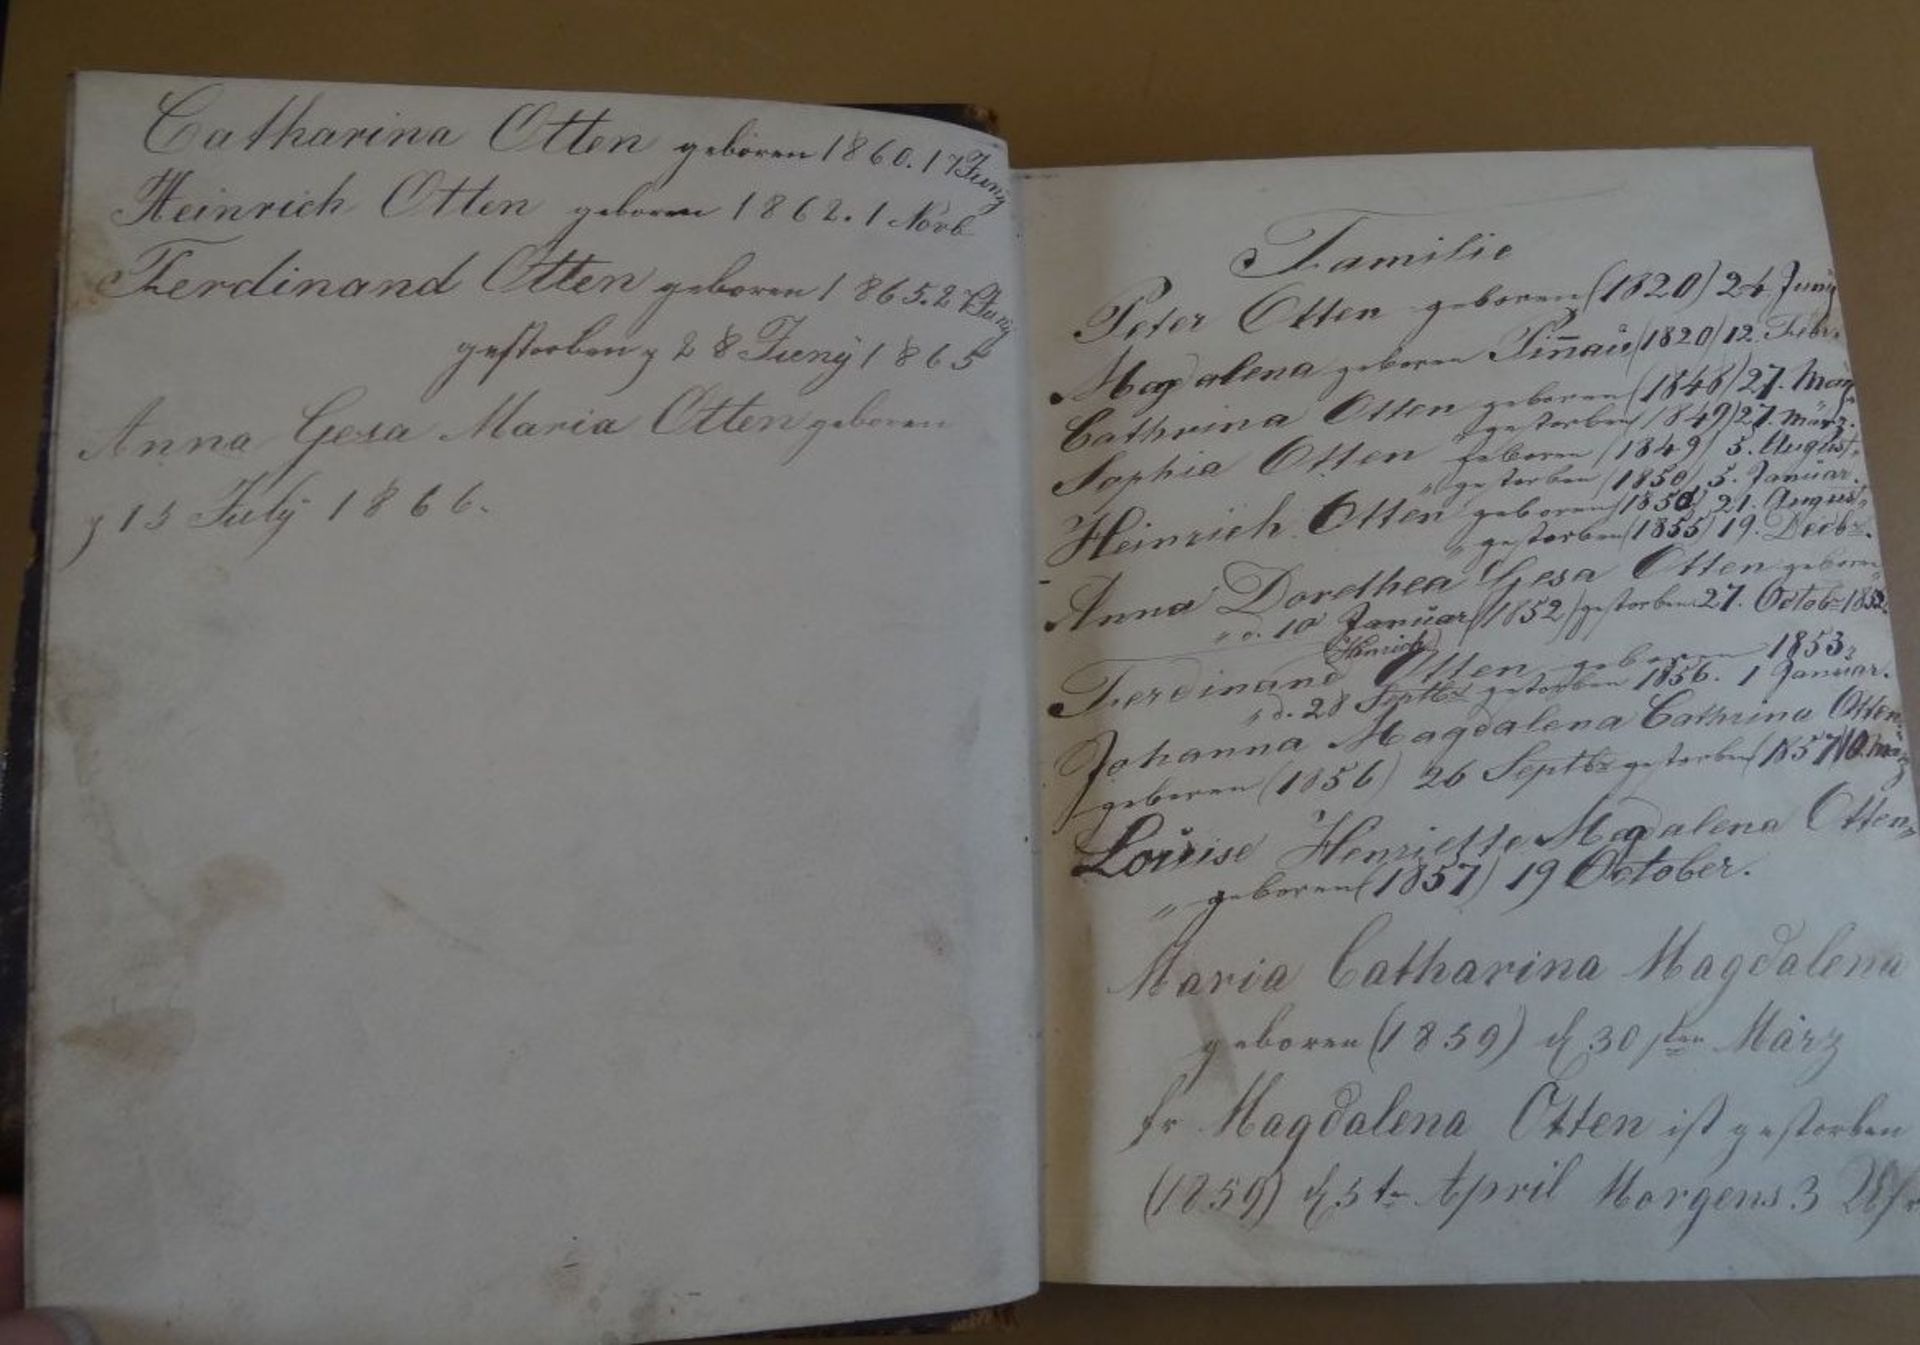 Catharina Otten geboren 1860. 17 Juny
Heinrich Otten geboren 1862. 1 Novb
Ferdinand Otten geboren 1865. 27 Juny
gestorben 28 Juny 1865
Anna Gesa Maria Otten geboren
15 July 1866.
Familie
Peter Otten geboren (1820) 24. Juny
Magdalena geboren Pin̄aü (1820) 12. Febr.
Cathrina Otten geboren (1848) 27. May
gestorben (1849) 27. März.
Sophia Otten geboren (1849) 5. August
" gestorben (1850) 5. Januar.
Heinrich Otten geboren 21. August
" gestorben (1855) 19. Decbr.
Anna Dorethea Gesa Otten geboren
" d. 10 Janüar (1852) gestorben 27. Octobr
Hinrich
Ferdinand Otten geboren 1853
" d. 28 Septbr gestorben 1856. 1 Januar.
Johanna Magdalena Cathrina Otten
geboren (1856) 26 Septbr gestorben 1857 10. März
Loüise Henriette Magdalena Otten
" geboren (1857) 19 October.
Maria Catharina Magdalena
geboren (1859) d 30sten März
fr Magdalena Otten ist gestorben
(1859) d 5tn April Morgens 3 Uhr